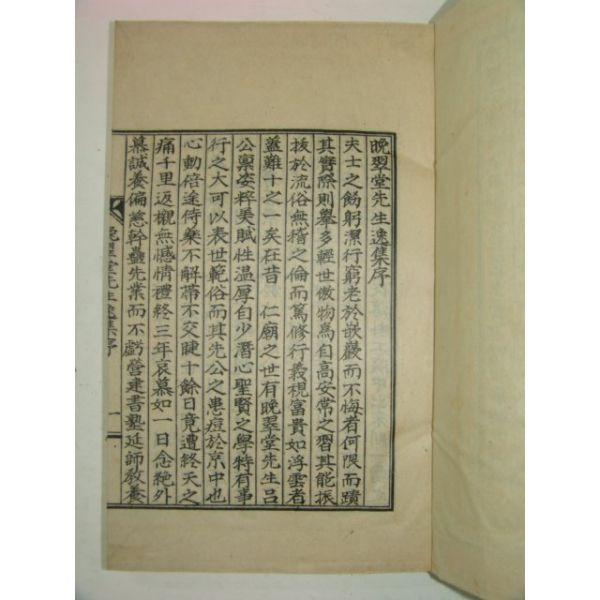 晚翠堂先生逸集序
夫士之飭躬潔行窮老於嵌巖而不悔者何限而蹟
其實際則擧多輕世傲物爲自高安常之習其能振
拔於流俗無稽之倫而篤修行義視富貴如浮雲者
蓋難十之一矣在昔 仁廟之世有晚翠堂先生呂
公禀姿粹美賦性温厚自少潛心聖賢之學特有事
行之大可以表世範俗而其先公之患痘於京中也
心動倍途侍藥不解帶不交睫十餘日竟遭終天之
痛千里返櫬無憾情禮終三年哀慕如一日念絶外
慕誠養偏慈幹蠱先業而不虧營建書塾延師教養
晚翠堂先生逸集序 一